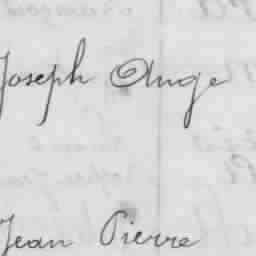 Joseph Ange
Jean Pierre